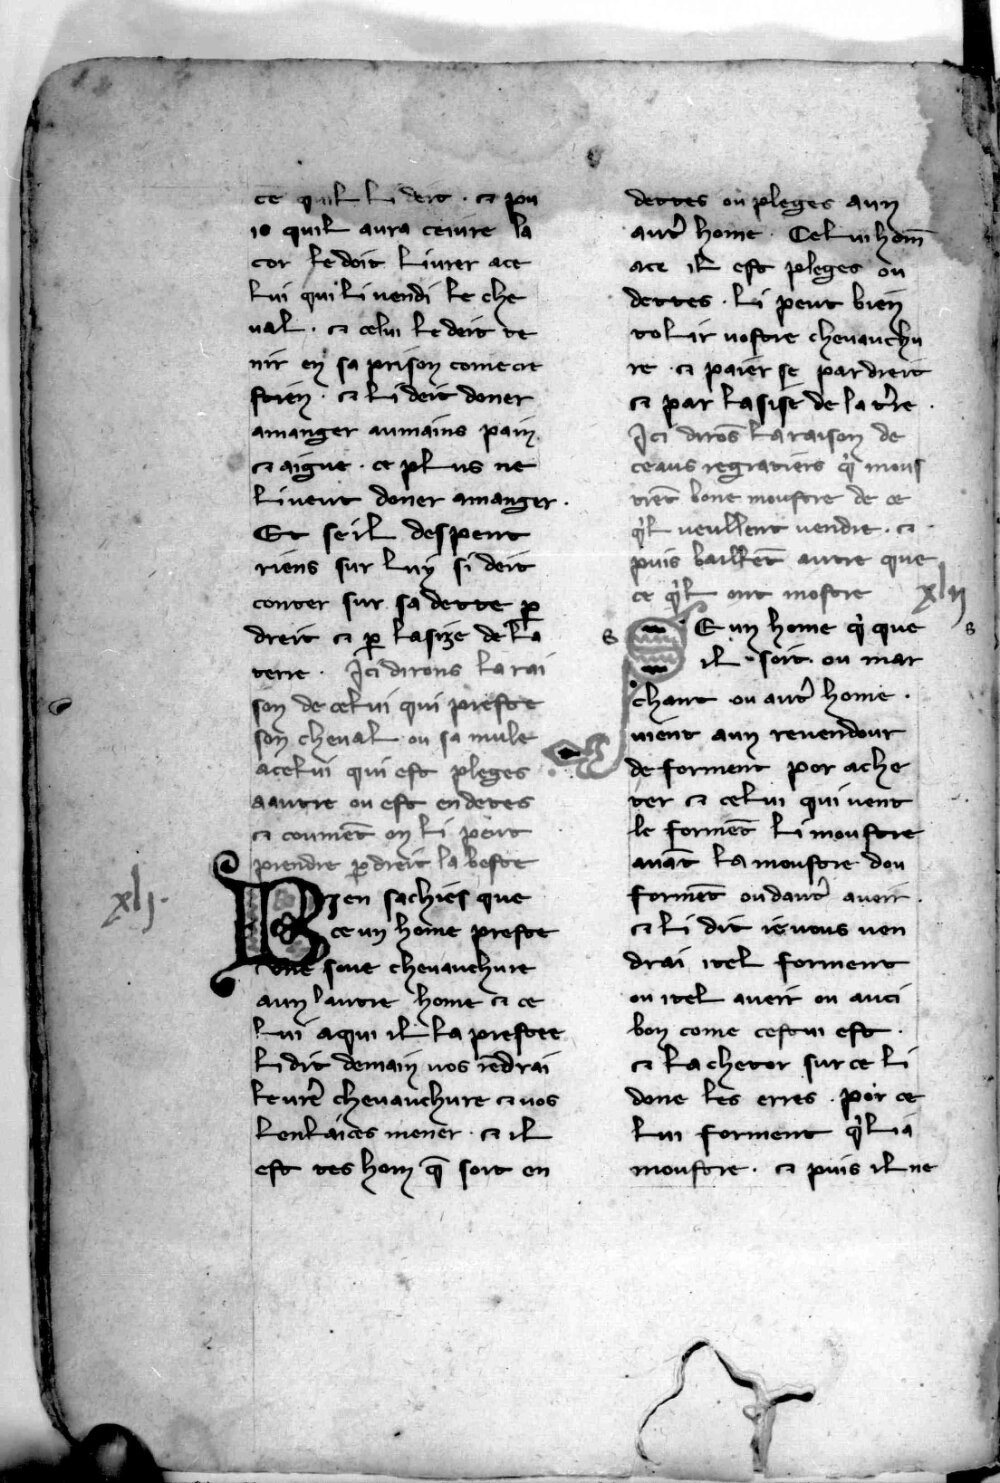 ce quil li deit · ⁊ pu
is quil aura ceiure la
cor le doit liurer ace
lui qui li uendi le che
ual · ⁊ celui le deit te
nir en sa prison come cre
stien · ⁊ li deit doner
amanger aumains pain
⁊ aigue · ce plus ne
li ueut doner amanger ·
Et se il despent
riens sur luy si deit
conter sur sa dette ꝑ
dreit ⁊ ꝑ lasize de la
terre · Ici dirons la rai
son de celui qui preste
son cheual ou sa mule
acelui qui est pleges
aautre ou est en detes
⁊ coumēt on li peut
prendre ꝑ dreit la beste
xlj·
Bien sachies que
ce un home preste
une soue cheuauchure
aun autre home ⁊ ce
lui aqui il la prestee
li dit demain uos rēdrai
le urē cheuauchure ⁊ uos
len laices mener · ⁊ il
est tes hom q̄ soit en
dettes ou pleges aun
autr̄ home · Celui hom̄
ace il est pleges ou
dettes · li peut bien
tolir uostre cheuauchu
re · ⁊ paier se par dreit
⁊ par lasise de la tr̄re ·
Ici dirōs la raison de
ceaus regratiers q̇ mous
trēt bone moustre de ce
q̇l ueullent uendre · ⁊ ·
puis baillēt autre que
ce q̇l ont mostre
xlij
s
SE un home q̇ que
s
il soit · ou mar
chant ou autr̄ home ·
uient aun reuendour
de forment por ache
ter ⁊ celui qui uent
le formēt li moustre
auāt la moustre dou
formēt ou dautr̄ aueir ·
⁊ li dit ie uous uen
drai itel forment
ou itel aueir ou auci
bon come cestui est ·
⁊ lachetor sur ce li
done les erres · por ce
lui forment q̇l a
moustre · ⁊ puis il ne